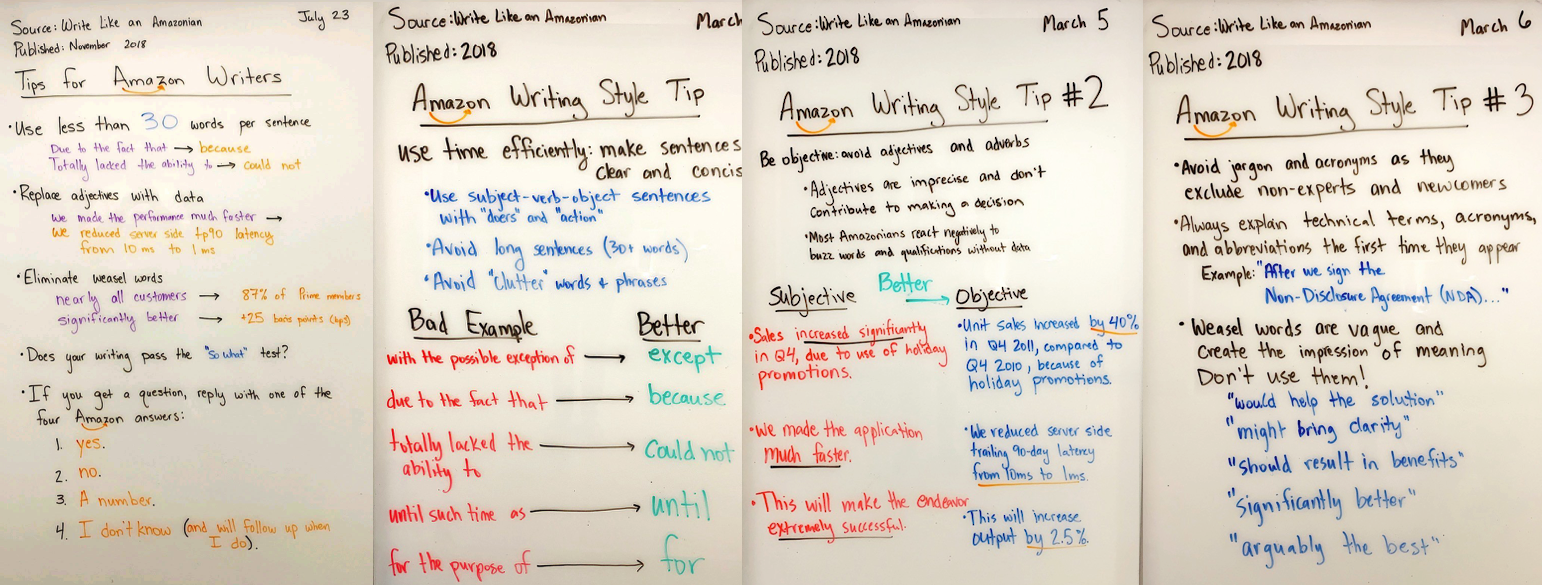 Source: Write Like an Amazonian
July 23
Published: November 2018
Tips for Amazon Writers
• Use less than 30 words per sentence
Due to the fact that → because
Totally lacked the ability to → could not
• Replace adjectives with data
We made the performance much faster →
We reduced server side tp90 latency
from 10 ms to 1 ms
• Eliminate weasel words
nearly all customers → 87% of Prime members
significantly better → +25 basis points (bps)
• Does your writing pass the "So what" test?
• If you get a question, reply with one of the
four Amazon answers:
1. yes.
2. no.
3. A number.
4. I don't know (and will follow up when
I do).
Source: Write Like an Amazonian
March
Published: 2018
Amazon Writing Style Tip
use time efficiently: make sentences
clear and concis
• Use subject-verb-object sentences
with "doers" and "action"
• Avoid long sentences (30+ words)
• Avoid "Clutter" words + phrases
Bad Example Better
with the possible exception of → except
due to the fact that → because
totally lacked the → Could not
ability to
until such time as → until
for the purpose of → for
Source: Write Like an Amazonian
March 5
Published: 2018
Amazon Writing Style Tip #2
Be objective: avoid adjectives and adverbs
• Adjectives are imprecise and don't
contribute to making a decision
• Most Amazonians react negatively to
buzz words and qualifications without data
Subjective Better → Objective
• Sales increased significantly
in Q4, due to use of holiday
promotions.
• Unit sales increased by 40%
in Q4 2011, compared to
Q4 2010, because of
holiday promotions.
• We made the application
much faster.
• We reduced server side
trailing 90-day latency
from 10ms to 1ms.
• This will make the endeavor
extremely successful.
• This will increase
output by 2.5%.
Source: Write Like an Amazonian
March 6
Published: 2018
Amazon Writing Style Tip # 3
• Avoid jargon and acronyms as they
exclude non-experts and newcomers
• Always explain technical terms, acronyms,
and abbreviations the first time they appear
Example: "After we sign the
Non-Disclosure Agreement (NDA)..."
• Weasel words are vague and
create the impression of meaning
Don't use them!
"would help the solution"
"might bring clarity"
"should result in benefits"
"significantly better"
"arguably the best"